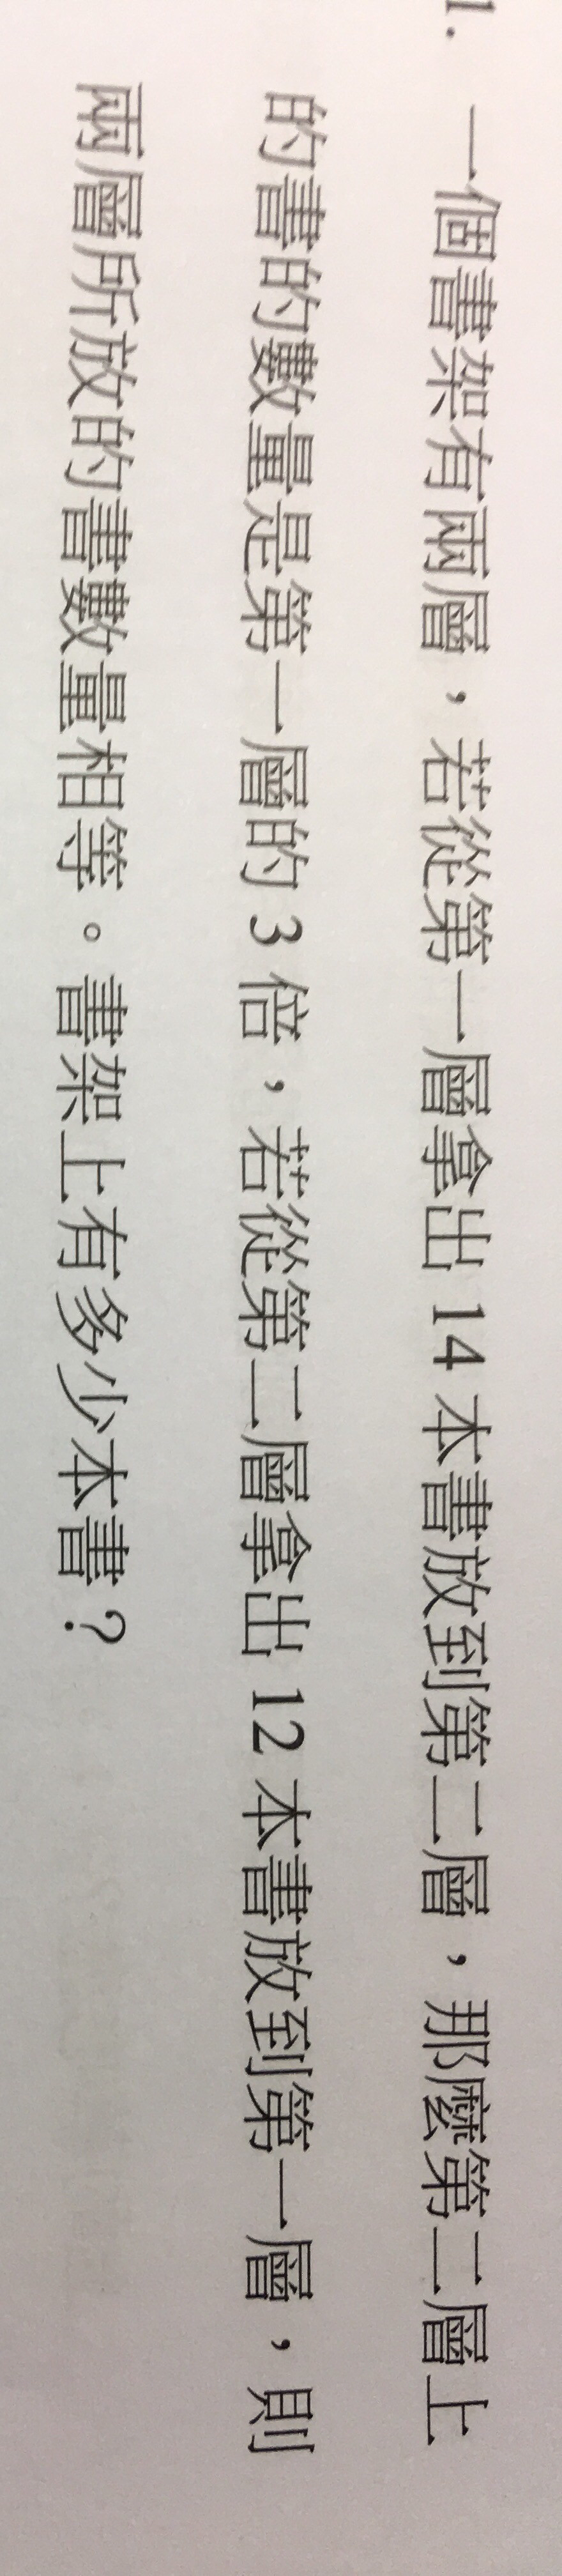 1. 一個書架有兩層，若從第一層拿出 14 本書放到第二層，那麼第二層上
的書的數量是第一層的 3 倍，若從第二層拿出 12 本書放到第一層，則
兩層所放的書數量相等。書架上有多少本書？